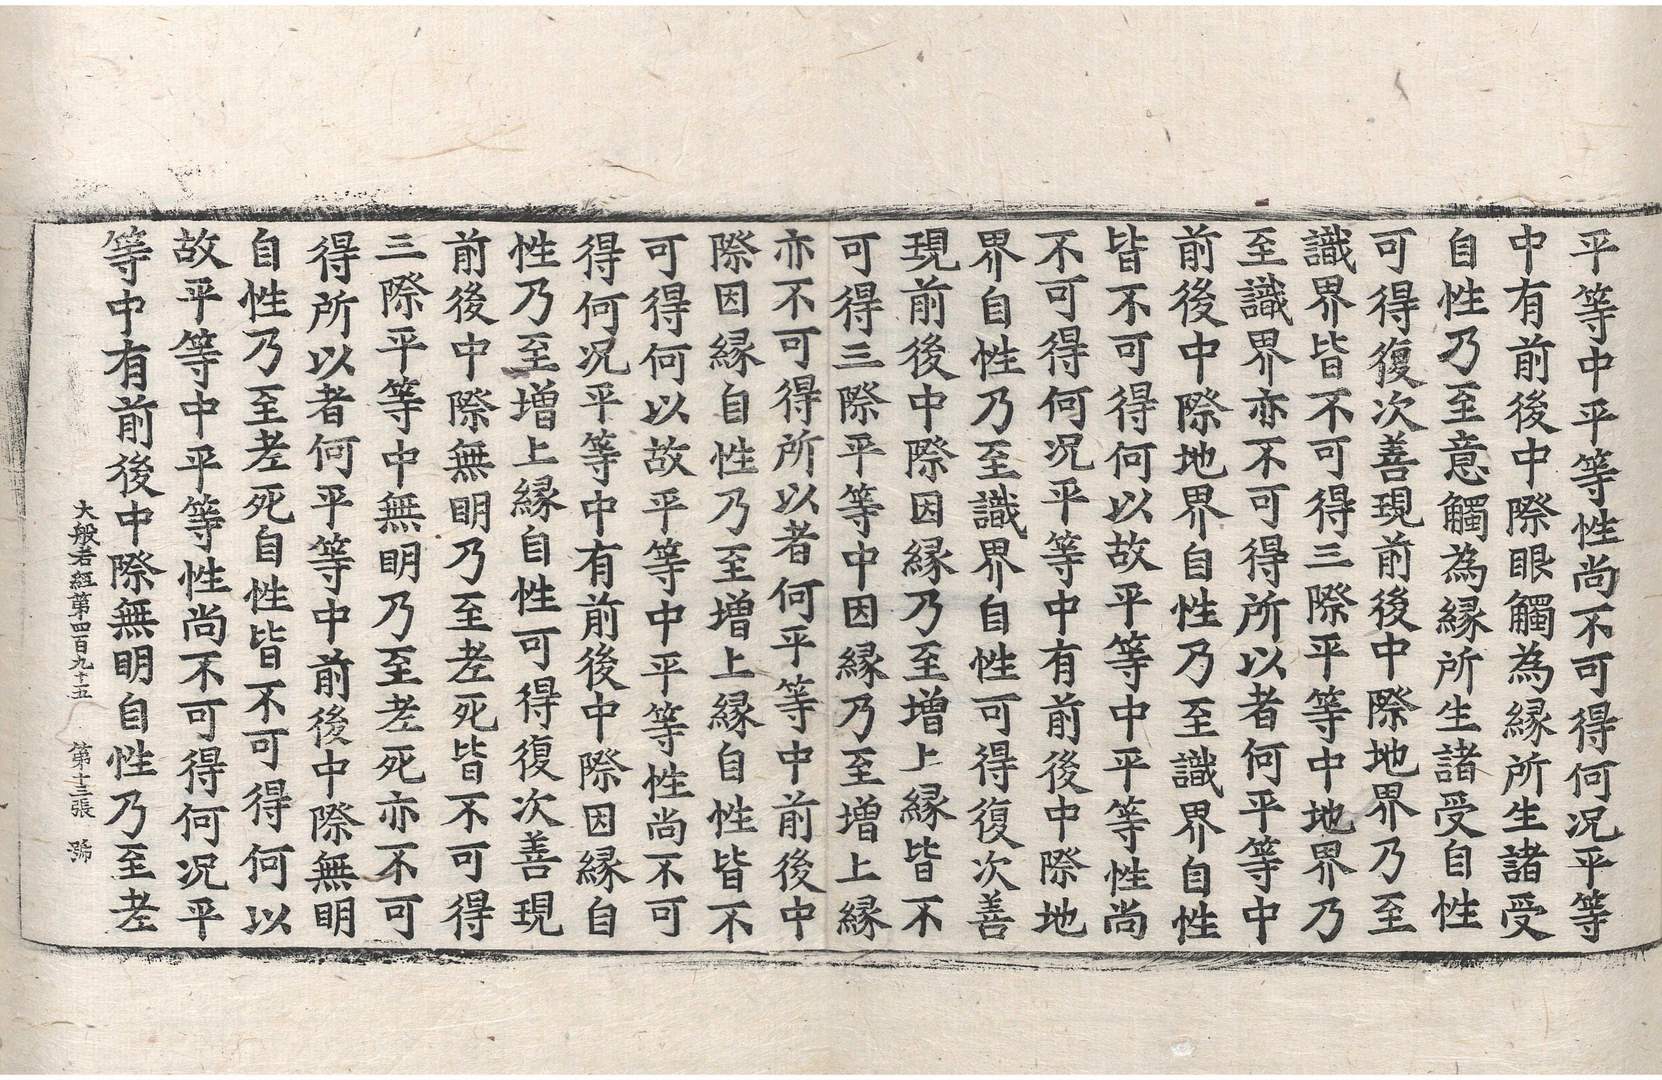 平等中平等性尚不可得何况平等
中有前後中際眼觸為縁所生諸受
自性乃至意觸為縁所生諸受自性
可得復次善現前後中際地界乃至
識界皆不可得三際平等中地界乃
至識界亦不可得所以者何平等中
前後中際地界自性乃至識界自性
皆不可得何以故平等中平等性尚
不可得何况平等中有前後中際地
界自性乃至識界自性可得復次善
現前後中際因縁乃至增上縁皆不
可得三際平等中因縁乃至增上縁
亦不可得所以者何平等中前後中
際因縁自性乃至增上縁自性皆不
可得何以故平等中平等性尚不可
得何况平等中有前後中際因縁自
性乃至增上縁自性可得復次善現
前後中際無明乃至老死皆不可得
三際平等中無明乃至老死亦不可
得所以者何平等中前後中際無明
自性乃至老死自性皆不可得何以
故平等中平等性尚不可得何况平
等中有前後中際無明自性乃至老
大般若經第四百九十五 第十三張 號